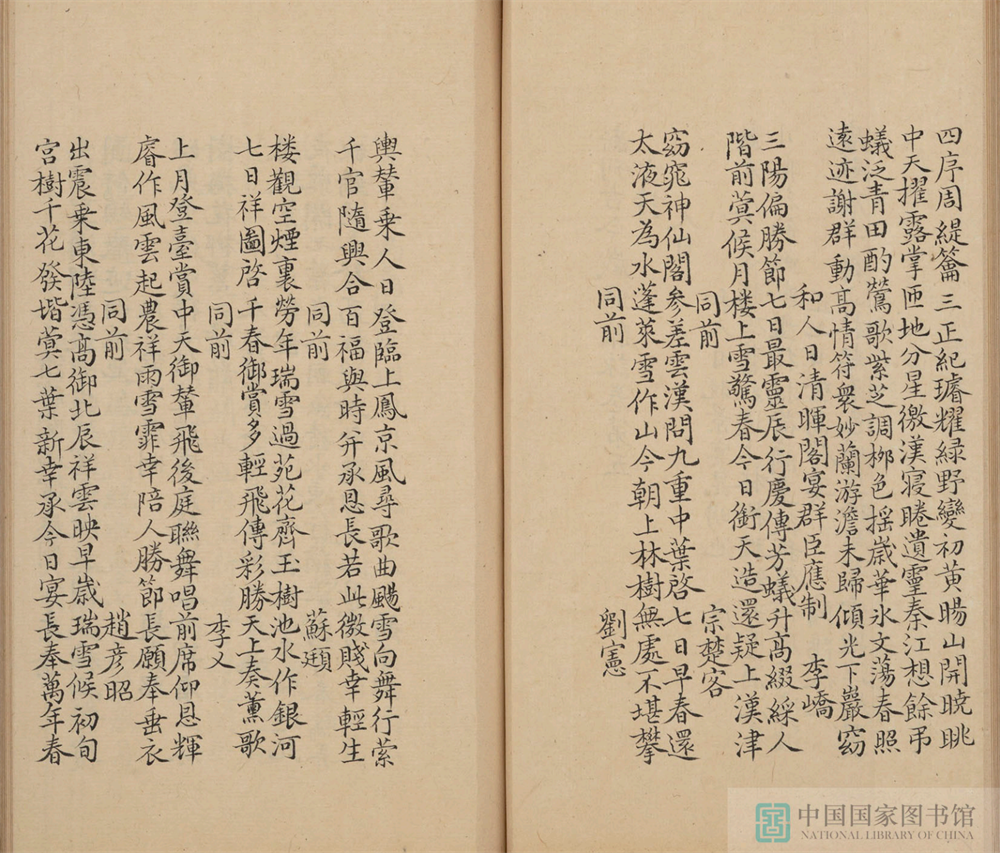 四序周緹籥三正紀璿耀緑野變初黄暘山開曉眺
中天擢露掌匝地分星徼漢寝睠遺靈秦江想餘弔
蟻泛青田酌鶯歌紫芝調栁色揺嵗華氷文蕩春照
遠迹謝群動髙情符衆妙蘭游澹未歸傾光下巖窈
和人日清暉閣宴群臣應制 李嶠
三陽偏勝節七日最靈辰行慶傳芳蟻升髙綴綵人
階前蓂候月楼上雪驚春今日銜天造還疑上漢津
同前 宗楚客
窈窕神仙閣參差雲漢問九重中葉啓七日早春還
太液天為水蓬萊雪作山今朝上林樹無處不堪攀
同前 劉憲
輿輦乗人日登臨上鳳京風尋歌曲颺雪向舞行縈
千官隨興合百福與時并承恩長若此微賤幸輕生
同前 蘇頲
楼觀空煙裏勞年瑞雪過苑花齊玉樹池水作銀河
七日祥圖啓千春御賞多輕飛傳彩勝天上奏薫歌
同前 李乂
上月登臺賞中天御輦飛後庭聯舞唱前席仰恩輝
睿作風雲起農祥雨雪霏幸陪人勝節長願奉垂衣
同前 趙彦昭
出震乗東陸憑髙御北辰祥雲映早嵗瑞雪候初旬
宫樹千花發堦蓂七葉新幸承今日宴長奉萬年春
中国国家图书馆
NATIONAL LIBRARY OF CHINA